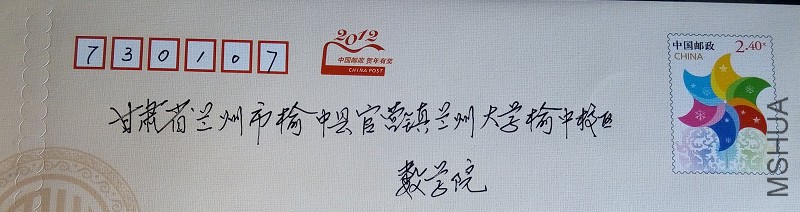 730107
2012
中国邮政 贺年有奖
CHINA POST
中国邮政
2.40元
CHINA
甘肃省兰州市榆中县官营镇兰州大学榆中校区
数学院
MSHUA